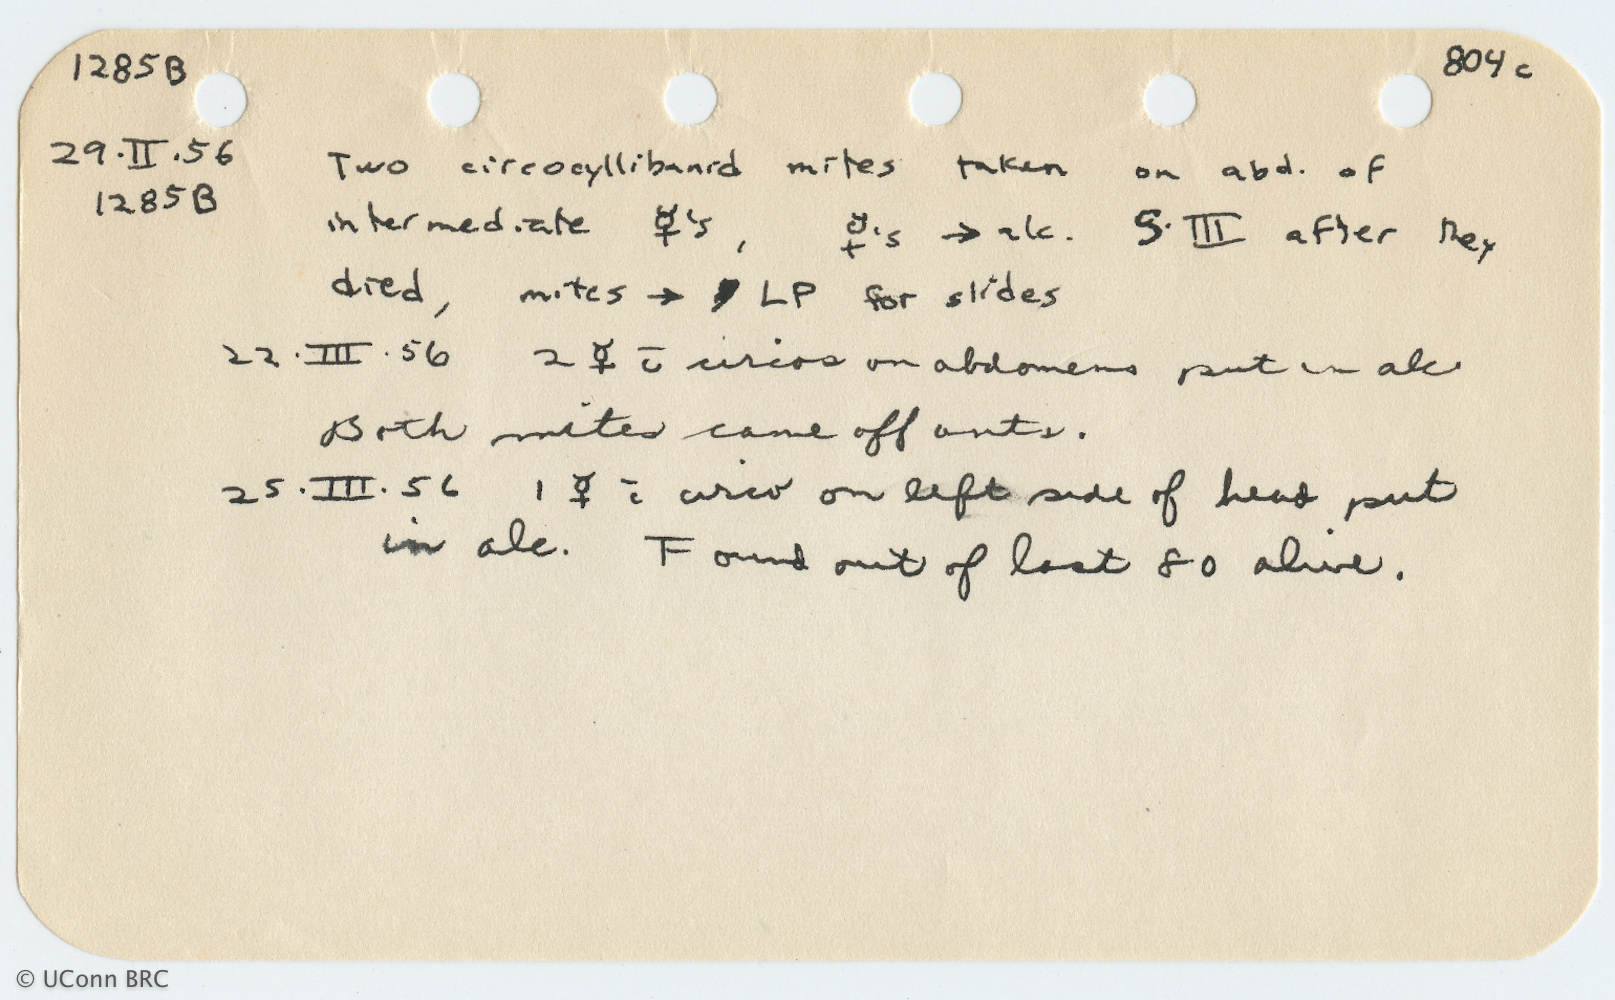 1285B 804c
29.II.56 Two circocyllibanid mites taken on abd. of
1285B
intermediate ☿'s, ☿'s → alc. 5.III after they
died, mites → LP for slides
22.III.56 2 ☿ c̄ circos on abdomens put in alc
Both mites came off ants.
25.III.56 1 ☿ c̄ circo on left side of head put
in alc. Found out of last 80 alive.
© UConn BRC